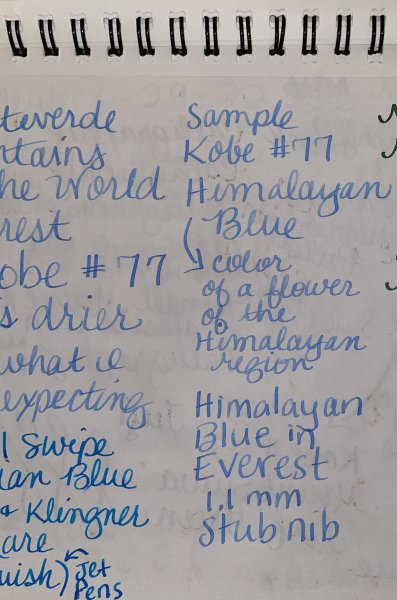 teverde
ntains
he World
rest
obe #77
s drier
what I
expecting
l Swipe
an Blue
& Klingner
are
uish) Jet
Pens
Sample
Kobe #77
Himalayan
Blue
color
of a flower
of the
Himalayan
region
Himalayan
Blue in
Everest
1.1 mm
Stub nib